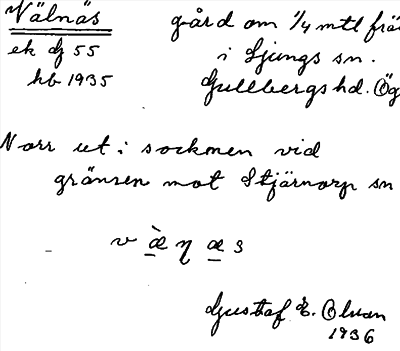 Välnäs gård om 1/4 mtl frä
ek bl 55 i Ljungs sn.
kb 1935 Gullbergs hd. Ög
Norr ut i socknen vid
gränsen mot Stjärnorp sn
v æ̀ η æ s
Gustaf E. Olsson
1936